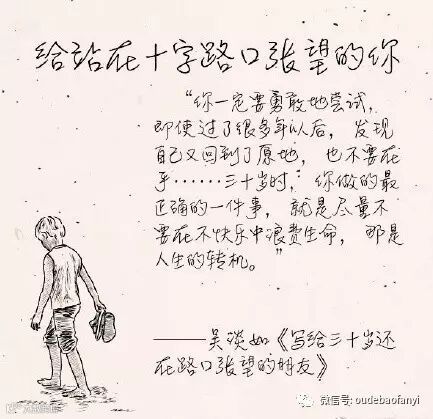 给站在十字路口张望的你
“你一定要勇敢地尝试，
即使过了很多年以后，发现
自己又回到了原地，也不要在
乎……三十岁时，你做的最
正确的一件事，就是尽量不
要在不快乐中浪费生命，那是
人生的转机。”
——吴淡如《写给三十岁还
在路口张望的朋友》
微信号: oudebaofanyi